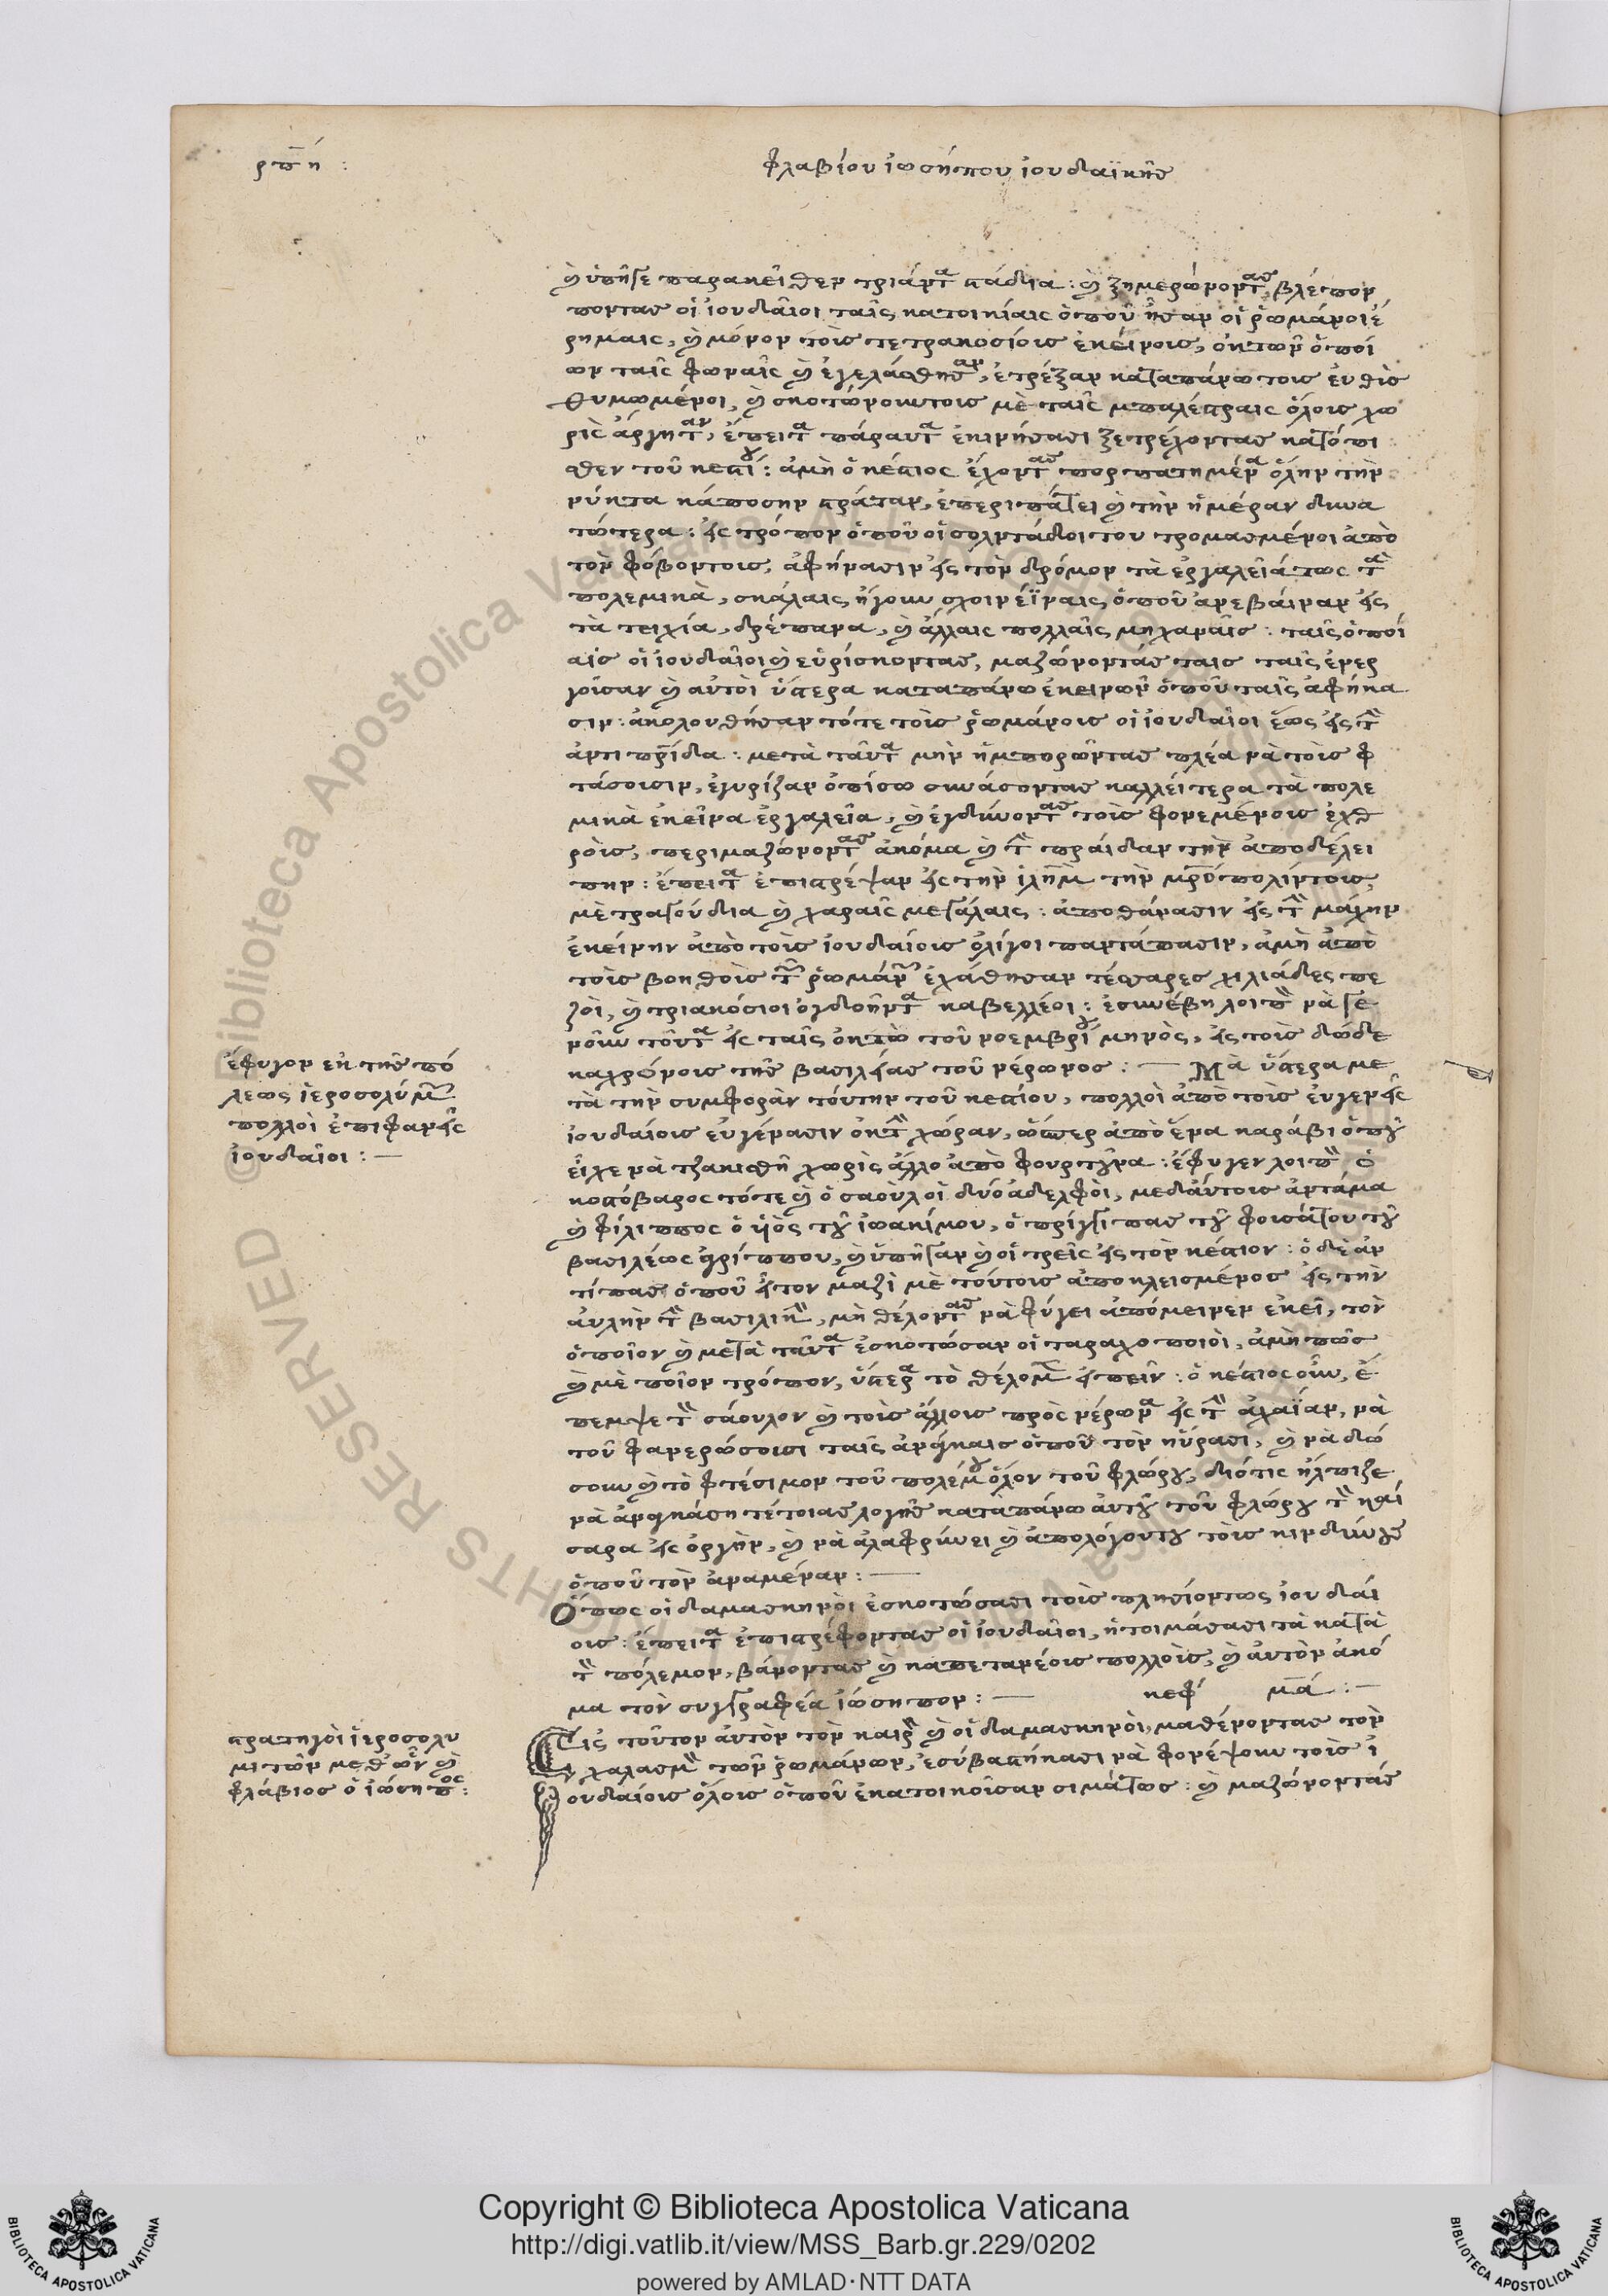 ρπη :
φλαβίου ἰωσήπου ἰουδαϊκῆσ
ὑπῆγε παρακεῖθεν τριάντα στάδια : ξημερώνοντασ, βλέπον
ποντασ οἱ ἰουδαῖοι ταῖς κατοικίαις ὁποῦ ἦσαν οἱ ῥωμάνοι ἐ
ρημαις, μόνον τοὺσ τετρακοσίουσ ἐκείνουσ, ἐκ τῶν ὁποί
ων ταῖς φωναῖς ἐγελάσθησαν, ἐτρέξαν καταπάνω τουσ εὐθὺσ
θυμωμένοι, σκοτώνουντουσ μὲ ταῖς μπαλέστραις ὅλουσ χω
ρὶς ἀργηταν, ἔπειτα πάραυτα ἐκινήσασι ξετρέχοντασ κατόπι
σθεν τοῦ κεστίου : ἀμὴ ὁ κέστιος ἔχοντασ πορπατημένα ὅλην τὴν
νύκτα κάποσην στράταν, ἐπεριπάτει τὴν ἡμέραν δυνα
τώτερα : εἰς τρόπον ὁποῦ οἱ σολντάδοι του τρομασμένοι ἀπὸ
τὸν φόβοντουσ, ἀφήνασιν εἰς τὸν δρόμον τὰ ἐργαλεῖάτως τὰ
πολεμικὰ, σκάλαις ἤγουν σχοινέϊναις, ὁποῦ ἀνεβαίναν εἰς
τὰ τειχία, δρέπανα, ἄλλαις πολλαῖς μηχαναῖσ : ταῖς ὁποί
αισ οἱ ἰουδαῖοι εὑρίσκοντασ, μαζώνοντάσ ταισ ταῖς ἐνερ
γοῦσαν αὐτοὶ ὕστερα καταπάνω ἐκεινῶν ὁποῦ ταῖς ἀφήκα
σιν : ἀκολουθήσαν τότε τοὺσ ῥωμάνουσ οἱ ἰουδαῖοι ἕως εἰς τὴν
ἀντιπρίδα : μετὰ ταῦτα μὴν ἠμπορῶντασ πλέα νὰ τοὺσ φ
τάσουσιν, ἐγυρίζαν ὀπίσω συνάσοντασ καλλείτερα τὰ πολε
μικὰ ἐκεῖνα ἐργαλεῖα, ἐγδύνοντασ τοὺσ φονεμένουσ ἐχθ
ροὺσ, περιμαζώνοντασ ἀκόμα τὴν πράιδαν τὴν ἀποδέλει
πην : ἔπειτα ἐπιστρέψαν εἰς τὴν ἰλημ τὴν μροπολίντουσ,
μὲ τραγούδια χαραῖς μεγάλαις : ἀποθάνασιν εἰς τὴν μάχην
ἐκείνην ἀπὸ τοὺσ ἰουδαίουσ ὀλίγοι παντάπασιν, ἀμὴ ἀπὸ
τοὺσ βοηθοὺσ τῶν ῥωμάνων ἐχάθησαν τέσσαρεσ χιλιάδες πε
ζοὶ, τριακόσιοι ὀγδοῆντα καβελλέοι : ἐσυνέβη λοιπὸν νὰ γε
νοῦν τοῦτα εἰς ταῖς ὀκτὼ τοῦ νοεμβρίου μηνὸς, εἰς τοὺσ δώδε
κα χρόνουσ τῆσ βασιλείασ τοῦ νέρωνοσ : — Μὰ ὕστερα με
τὰ τὴν συμφορὰν τούτην τοῦ κεστίου, πολλοὶ ἀπὸ τοὺσ εὐγενεῖς
ἰουδαίουσ εὐγένασιν ἐκ τὴν χώραν, ὥσπερ ἀπὸ ἕνα καράβι ὁποῦ
εἶχε νὰ τζακισθῆ χωρὶς ἄλλο ἀπὸ φουρτοῦνα : ἔφυγεν λοιπὸν ὁ
κοστόβαρος τότε ὁ σαοὺλ οἱ δύο ἀδελφοὶ, μεδάυτουσ ἀντάμα
φίλιππος ὁ υἱὸς τοῦ ἰωακίμου, ὁ πρίγκιπασ τοῦ φουσάτου τοῦ
βασιλέως ἀγρίππου, ὑπῆγαν οἱ τρεῖς εἰς τὸν κέστιον : ὁ δὲ ἀν
τίπασ ὁποῦ ἦτον μαζὶ μὲ τούτουσ ἀποκλεισμένοσ εἰς τὴν
ἀυλὴν τὴν βασιλικὴν, μὴ θέλοντασ νὰ φύγει ἀπόμεινεν ἐκεῖ, τὸν
ὁποῖον μετὰ ταῦτα ἐσκοτώσαν οἱ ταραχοποιοὶ, ἀμὴ πῶσ
μὲ ποῖον τρόπον, ὕστερα τὸ θέλομεν εἰπεῖν : ὁ κέστιος οὖν, ἔ
πεμψε τὸν σάουλον τοὺσ ἄλλουσ πρὸς νέρωνα εἰς τὴν ἀχαΐαν, νὰ
τοῦ φανερώσουσι ταῖς ἀνάγκαισ ὁποῦ τὸν ηὕρασι, νὰ δώ
σουν τὸ φτέσιμον τοῦ πολέμου ὅλον τοῦ φλώρου, διότις ἤλπιζε
νὰ ἀναγκάση τέτοιασ λογῆσ κατὰ πάνω ἀυτοῦ τοῦ φλώρου τὸν καί
σαρα εἰς ὀργὴν, νὰ ἀλαφρύνει ἀπολόγουντου τοὺσ κινδύνουσ
ὁποῦ τὸν ἀναμέναν : —
Ὅπως οἱ δαμασκηνοὶ ἐσκοτώσασι τοὺσ πλησίοντως ἰουδάι
ουσ : ἔπειτα ἐπιστρέφοντασ οἱ ἰουδαῖοι, ἡτοιμάσασι τὰ κατὰ
τὸν πόλεμον, βάνοντασ καπετανέουσ πολλοὺσ, ἀυτὸν ἀκό
μα τὸν συγγραφέα ἰώσηπον : — κεφ μα : —
Εἰς τοῦτον ἀυτὸν τὸν καιρὸν οἱ δαμασκηνοὶ, μαθένοντασ τὸν
χαλασμὸν τῶν ῥωμάνων, ἐσύβαστήκασι νὰ φονέψουν τοὺσ ἰ
ουδαίουσ ὅλουσ ὁποῦ ἐκατοικοῦσαν σιμάτωσ : μαζώνοντάσ
ἔφυγον ἐκ τῆσ πό
λεως ἱεροσολύμων
πολλοὶ ἐπιφανεῖς
ἰουδαῖοι : —
στρατηγοὶ ἱεροσολυ
μιτῶν μεθ ὧν
φλάβιοσ ὁ ἰώσηπος :
Copyright © Biblioteca Apostolica Vaticana
http://digi.vatlib.it/view/MSS_Barb.gr.229/0202
powered by AMLAD·NTT DATA